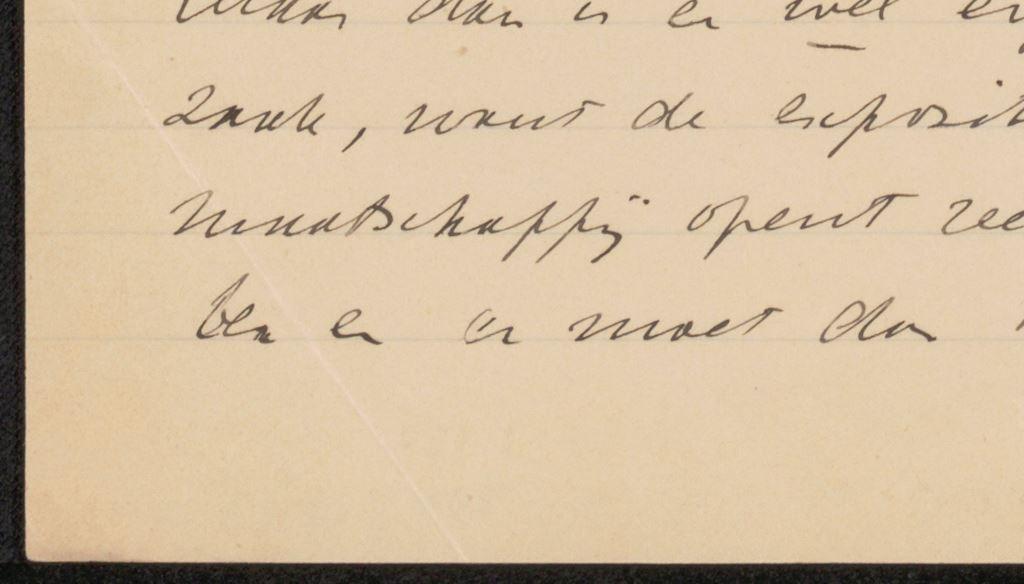 Maar dan is er wel
zaak, want de exposit
maatschappij opent
ben en er moet dan